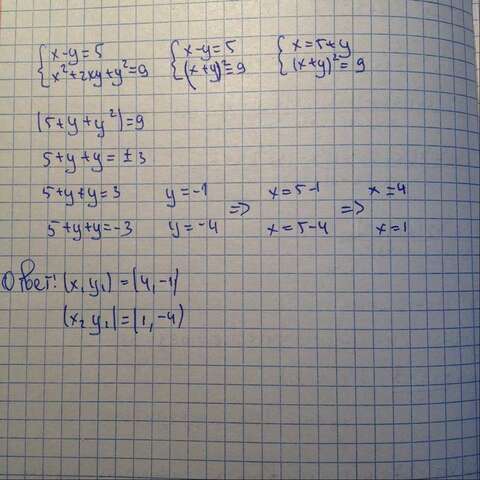 { x-y=5 { x-y=5 { x=5+y
{ x²+2xy+y²=9 { (x+y)²=9 { (x+y)²=9
(5+y+y²)=9
5+y+y=±3
5+y+y=3 y=-1 => x=5-1 => x=4
5+y+y=-3 y=-4 x=5-4 x=1
Ответ: (x, y₁)=(4,-1)
(x₂ y₂)=(1,-4)